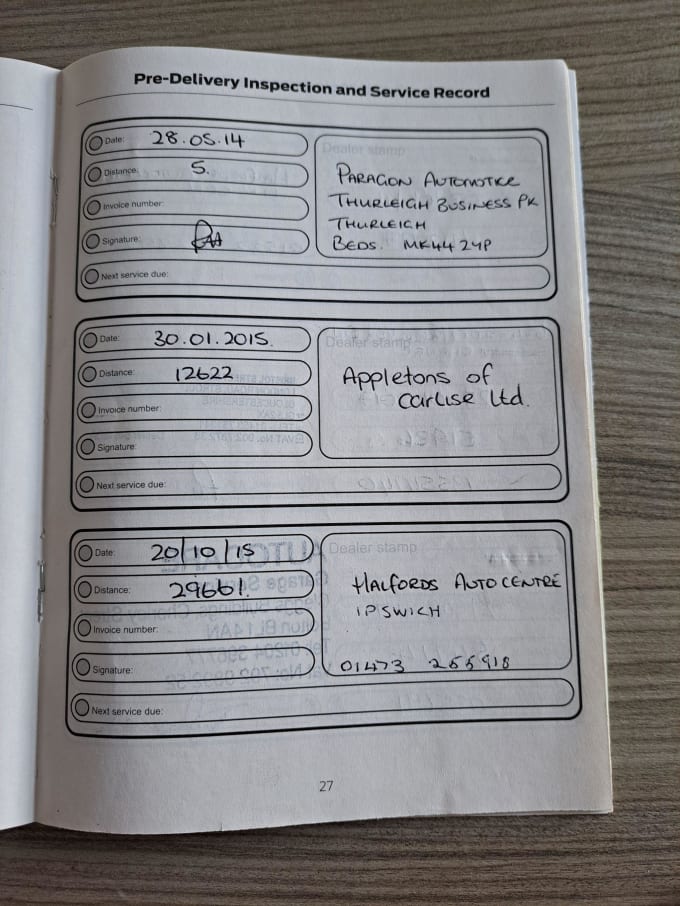 Pre-Delivery Inspection and Service Record
Date: 28.05.14
Distance: 5.
Invoice number:
Signature:
Next service due:
Dealer stamp
PARAGON AUTOMOTICE
THURLEIGH BUSINESS PK
THURLEIGH
BEDS. MK44 2YP
Date: 30.01.2015.
Distance: 12622
Invoice number:
Signature:
Next service due:
Dealer stamp
Appletons of
Carlise Ltd.
Date: 20/10/15
Distance: 29661.
Invoice number:
Signature:
Next service due:
Dealer stamp
HALFORDS AUTOCENTRE
IPSWICH
01473 255918
27